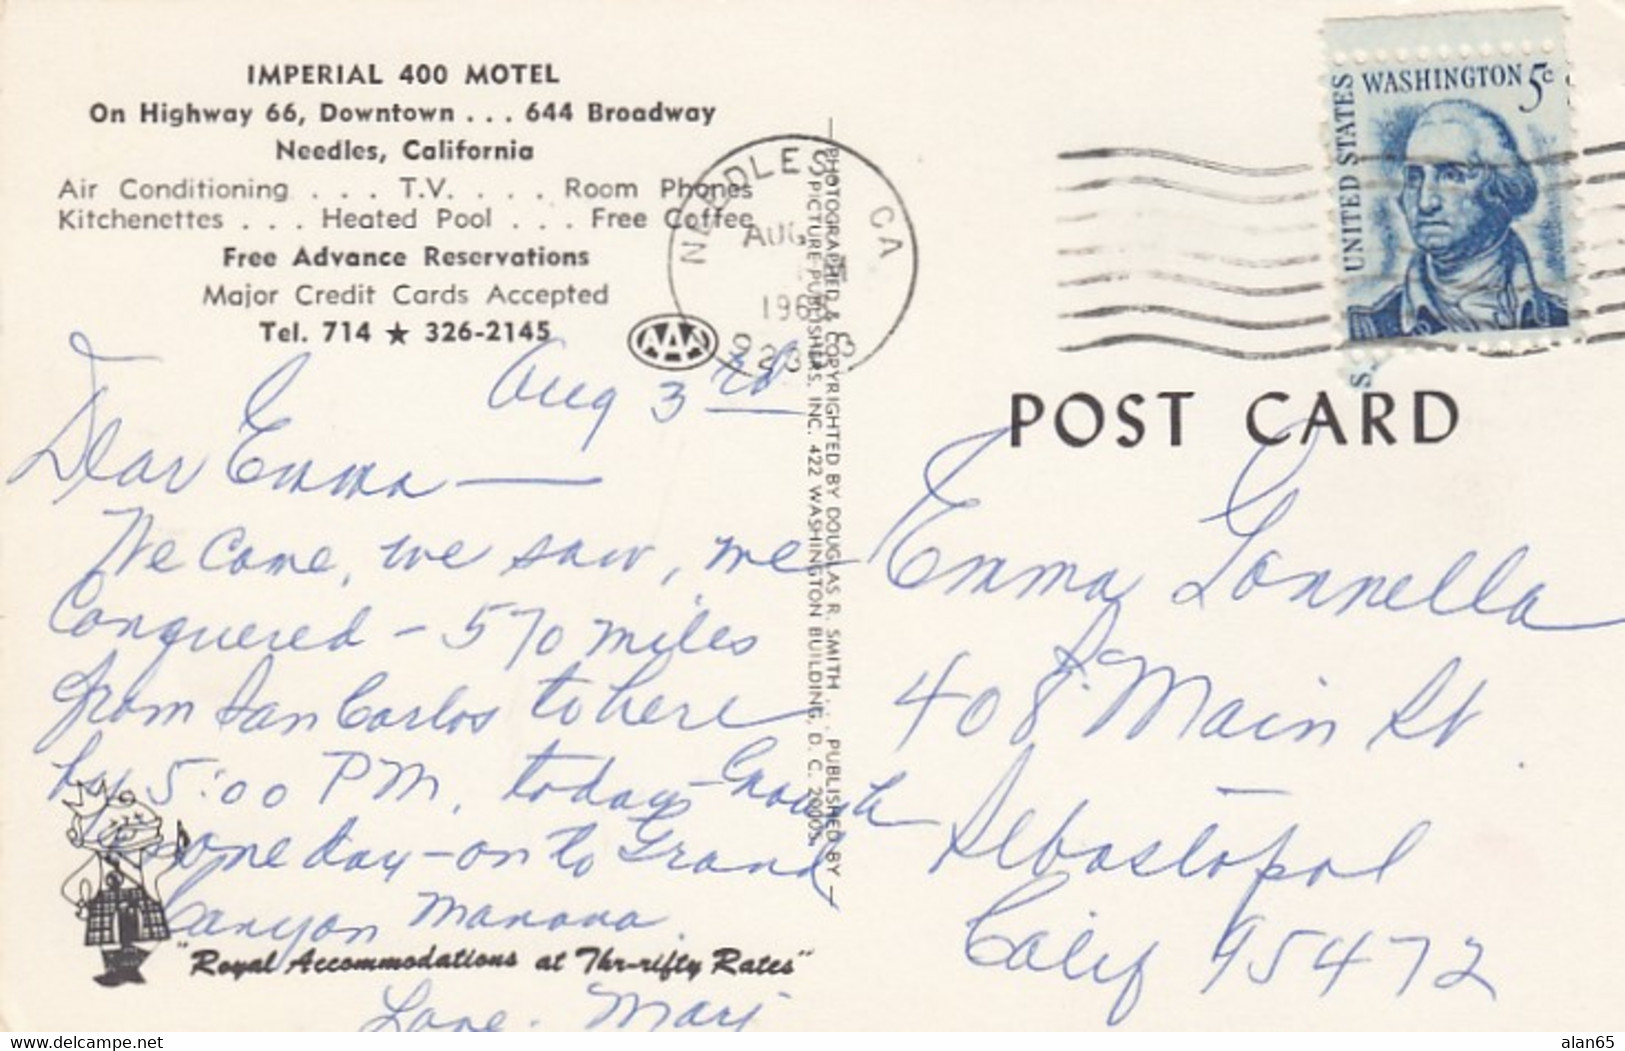 IMPERIAL 400 MOTEL
On Highway 66, Downtown . . . 644 Broadway
Needles, California
Air Conditioning . . . T.V. . . . Room Phones
Kitchenettes . . . Heated Pool . . . Free Coffee
Free Advance Reservations
Major Credit Cards Accepted
Tel. 714 ★ 326-2145
AAA
NEEDLES CA
AUG
196
923
UNITED STATES
WASHINGTON 5c
POST CARD
PHOTOGRAPHED & COPYRIGHTED BY DOUGLAS R. SMITH . . . PUBLISHED BY
PICTURE PUBLISHERS, INC. 422 WASHINGTON BUILDING, D. C. 20005
Aug 3rd
Dear Emma —
We came, we saw, we
Conquered - 570 miles
from San Carlos to here
by 5:00 PM. today - Enough
some day - on to Grand
Canyon manana.
Love. Marj
"Royal Accommodations at Thr-rifty Rates"
Emma Gonnella
408 Main St.
Sebastopol
Calif 95472
www.delcampe.net
alan65